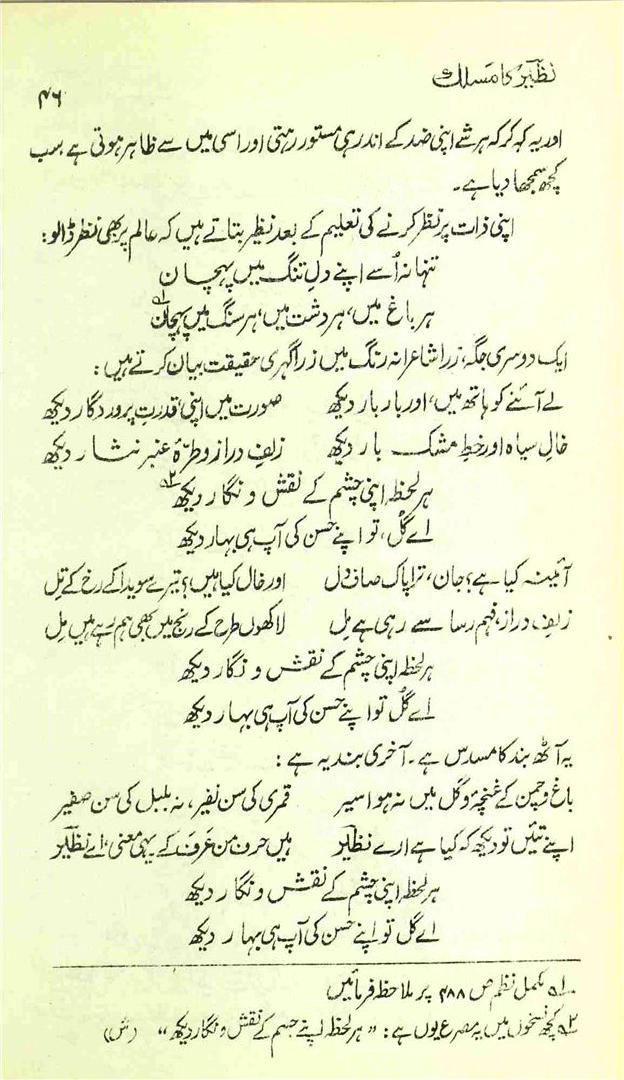 نظیرؔ کا مسلک
۴۶
اور یہ کہہ کر کہ ہر شے اپنی ضد کے اندر ہی مستور رہتی اور اسی میں سے ظاہر ہوتی ہے سب
کچھ سمجھا دیا ہے۔
اپنی ذات پر نظر کرنے کی تعلیم کے بعد نظیر بتاتے ہیں کہ عالم پر بھی نظر ڈالو:
تنہا نہ اُسے اپنے دلِ تنگ میں پہچان
ہر باغ میں، ہر دشت میں، ہر سنگ میں پہچان ؎۱
ایک دوسری جگہ، زرا شاعرانہ رنگ میں زرا گہری حقیقت بیان کرتے ہیں:
لے آئنے کو ہاتھ میں، اور بار بار دیکھ صورت میں اپنی، قدرتِ پروردگار دیکھ
خالِ سیاہ اور خطِ مشک بار دیکھ زلفِ دراز و طرّۂ عنبر نثار دیکھ
ہر لحظہ اپنی چشم کے نقش و نگار دیکھ ؎۲
اے گُل، تو اپنے حسن کی آپ ہی بہار دیکھ
آئینہ کیا ہے؟ جان، ترا پاک صاف دل اور خال کیا ہیں؟ تیرے سویدا کے رخ کے تِل
زلفِ دراز، فہم رسا سے رہی ہے مِل لاکھوں طرح کے رنج میں بھی ہم رہے ہیں مِل
ہر لحظہ اپنی چشم کے نقش و نگار دیکھ
اے گُل تو اپنے حسن کی آپ ہی بہار دیکھ
یہ آٹھ بند کا مسدس ہے۔ آخری بند یہ ہے:
باغ و چمن کے غنچۂ و گل میں نہ ہو اسیر قمری کی سن نفیر، نہ بلبل کی سن صفیر
اپنے تئیں تو دیکھ کہ کیا ہے ارے نظیرؔ ہیں حرف من عَرَف کے یہی معنی، اے نظیرؔ
ہر لحظہ اپنی چشم کے نقش و نگار دیکھ
اے گل تو اپنے حسن کی آپ ہی بہار دیکھ
؎۱ مکمل نظم ص ۴۸۸ پر ملاحظہ فرمائیں
؎۲ کچھ نسخوں میں یہ مصرع یوں ہے: "ہر لحظہ اپنے جسم کے نقش و نگار دیکھ" (ش)